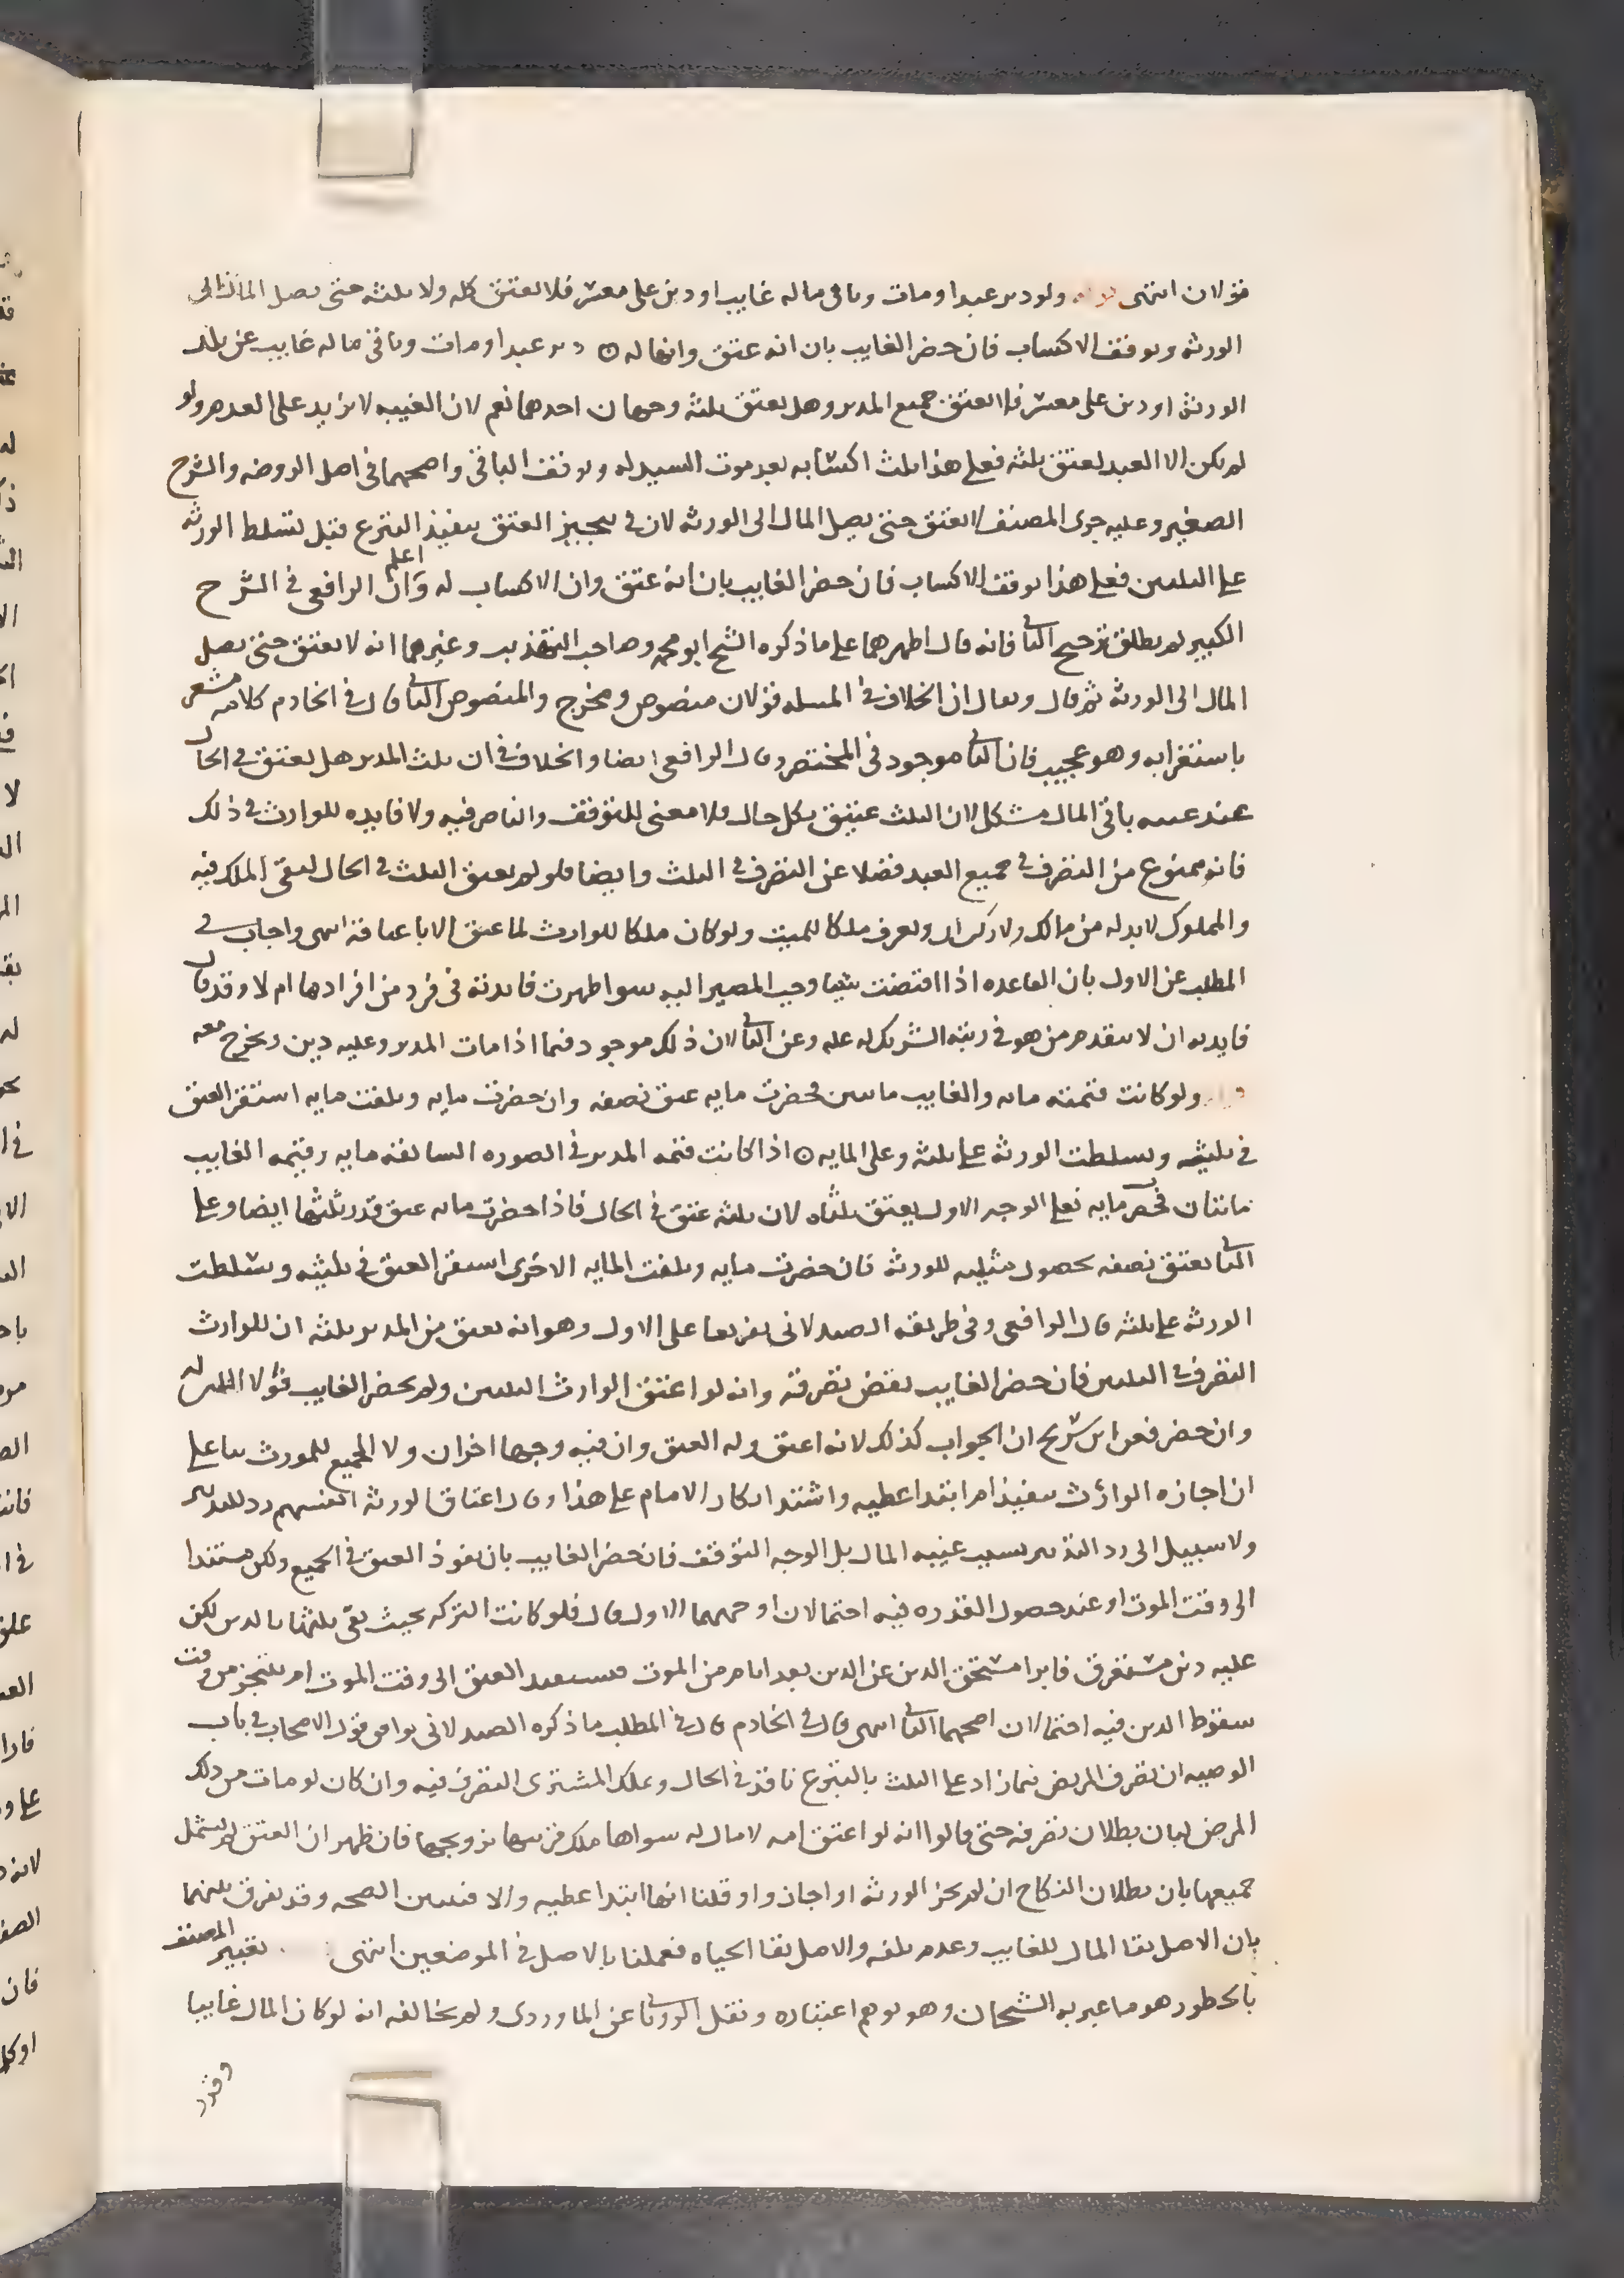 قولان انتهى ولو دبر عبدا ومات وباقى ماله غايب او دين على معسر فلا يعتق كله ولا ثلثه حتى يصل المال الى
الورثه ويوقف الاكساب فان حضر الغايب بان انه عتق وانها له ⊙ دبر عبدا ومات وباقى ماله غايب عن بلد
الورثه او دين على معسر فلا يعتق جميع المدبر وهل يعتق ثلثه وجهان احدهما نعم لان الغيبه لا تزيد على العدم ولو
لم يكن الا العبد لعتق ثلثه فعلى هذا ثلث اكسابه بعد موت السيد له ويوقف الباقى واصحهما فى اصل الروضه والشرح
الصغير وعليه جرى المصنف لا يعتق حتى يصل المال الى الورثه لان فى تنجيز العتق تنفيذ التبرع قبل تسلط الورثه
على الثلثين فعلى هذا يوقف الاكساب فان حضر الغايب بان انه عتق وان الاكساب له واعلم ان الرافعى فى الشرح
الكبير لم يطلق ترجيح الثانى فانه قال اظهرهما على ما ذكره الشيخ ابو محمد وصاحب التهذيب وغيرهما انه لا يعتق حتى يصل
المال الى الورثه ثم قال ويقال ان الخلاف فى المسله قولان منصوص ومخرج والمنصوص الثانى قال فى الخادم كلامه مشعر
باستغرابه وهو عجيب فان الثانى موجود فى المختصر وقال الرافعى ايضا والخلاف فى ان ثلث المدبر هل يعتق فى الحال
عند غيبه باقى المال مشكل لان الثلث عتيق بكل حال فلا معنى للتوقف والتاخر فيه ولا فايده للوارث فى ذلك
فانه ممنوع من التصرف فى جميع العبد فضلا عن التصرف فى الثلث وايضا فلو لم يعتق الثلث فى الحال لبقى الملك فيه
والمملوك لا بد له من مالك ولا ولعرف ملكا للميت ولو كان ملكا للوارث لما عتق الا باعتاقه انتهى واجاب فى
المطلب عن الاول بان القاعده اذا اقتضت شيا وجب المصير اليه سوا ظهرت فايدته فى فرد من افرادها ام لا وقد قال
فايدته ان لا يتقدم من هو فى رتبه الشريك له عله وعن الثانى لان ذلك موجود فيما اذا مات المدبر وعليه دين ويخرج معه
ولو كانت قيمته مايه والغايب مايتين فحضرت مايه عتق نصفه وان حضرت مايه وتلفت مايه استقر العتق
فى ثلثيه وتسلطت الورثه على ثلثه وعلى المايه ⊙ اذا كانت قيمه المدبر فى الصوره السالفه مايه وقيمه الغايب
مايتان فحضر مايه فعلى الوجه الاول يعتق ثلثاه لان ثلثه عتق فى الحال فاذا حضرت مايه عتق قدر ثلثها ايضا وعلى
الثانى يعتق نصفه لحصول مثليه للورثه فان حضرت مايه وتلفت المايه الاخرى استقر العتق فى ثلثيه وتسلطت
الورثه على ثلثه قال الرافعى وفى طريقه الصيدلانى تفريعا على الاول وهو انه يعتق من المدبر ثلثه ان للوارث
التصرف فى الثلثين فان حضر الغايب نقض تصرفه وانه لو اعتق الوارث الثلثين ولم يحضر الغايب فولا الثلثين له
وان حضر فعن ابن سريج ان الجواب كذلك لانه اعتق وله العتق وان فيه وجها اخر ان ولا الجميع للمورث بنا على
ان اجازه الوارث تنفيذ ام ابتدا عطيه واشتد انكار الامام على هذا وقال اعتاق الورثه انفسهم رد للتدبير
ولا سبيل الى رد التدبير بسبب غيبه المال بل الوجه التوقف فان حضر الغايب بان نفوذ العتق فى الجميع ولكن مستندا
الى وقت الموت او عند حصول القدره فيه احتمالان اوجههما الاول قال فلو كانت التركه بحيث يفى ثلثها بالدين لكن
عليه دين مستغرق فابرا مستحق الدين عن الدين بعد ايام من الموت فيستند العتق الى وقت الموت ام يتنجز من وقت
سقوط الدين فيه احتمالان اصحهما الثانى انتهى قال فى الخادم قال فى المطلب ما ذكره الصيدلانى يوافق قول الاصحاب فى باب
الوصيه ان تصرف المريض فيما زاد على الثلث بالتبرع نافذ فى الحال وعلك المشترى التصرف فيه وان كان لو مات من ذلك
المرض لبان بطلان تصرفه حتى قالوا انه لو اعتق امه لا مال له سواها ملك قريبها تزويجها فان ظهر ان العتق لم يشمل
جميعها بان بطلان النكاح ان لم يجز الورثه او اجازوا وقلنا انها ابتدا عطيه والا فتبين الصحه وقد يفرق بينهما
بان الاصل بقا المال للغايب وعدم تلفه والاصل بقا الحياه فعملنا بالاصل فى الموضعين انتهى تعبير المصنف
بالحضور هو ما عبر به الشيخان وهو يوهم اعتباره ونقل الرويانى عن الماوردى ولم يخالفه انه لو كان المال غايبا
وقدر